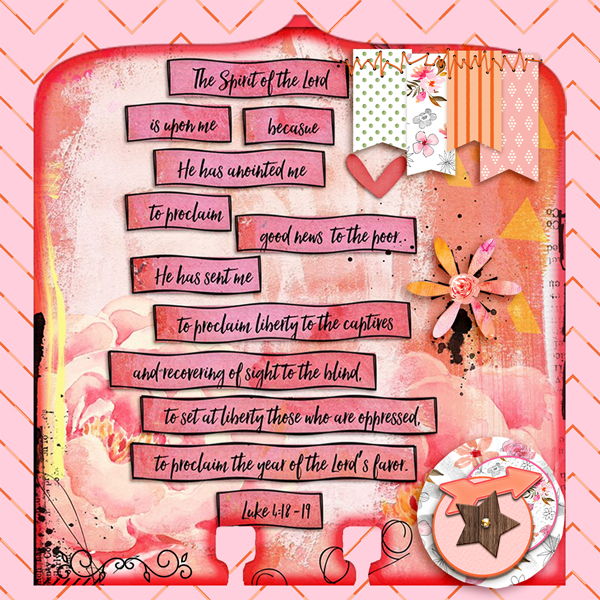 The Spirit of the Lord
is upon me becasue
He has anointed me
to proclaim
good news to the poor..
He has sent me
to proclaim liberty to the captives
and recovering of sight to the blind,
to set at liberty those who are oppressed,
to proclaim the year of the Lord's favor.
Luke 4:18-19